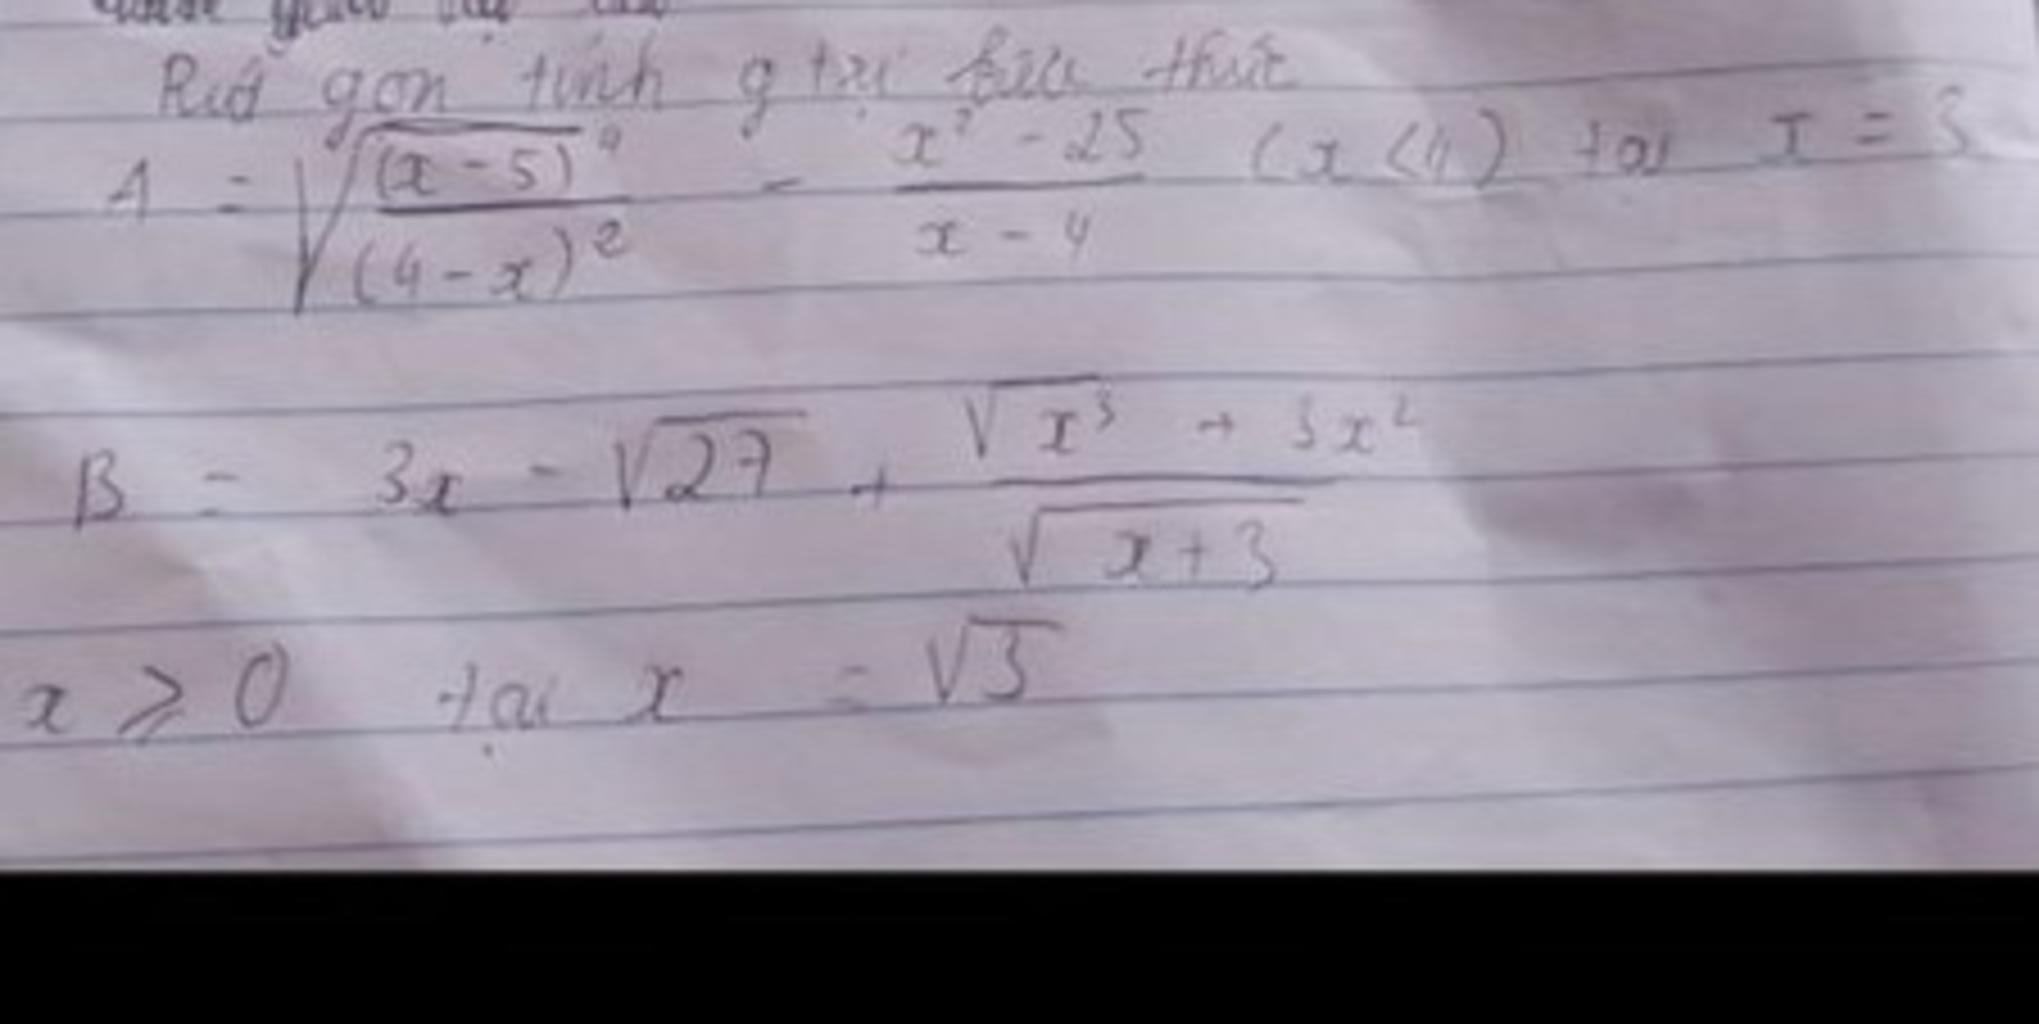 Rút gọn tính g trị biểu thức
A = √((x - 5)⁴ / (4 - x)²) - (x² - 25) / (x - 4) (x < 4) tại x = 3
B = 3x - √27 + (√x³ + 3x²) / √(x + 3)
x ≥ 0 tại x = √3